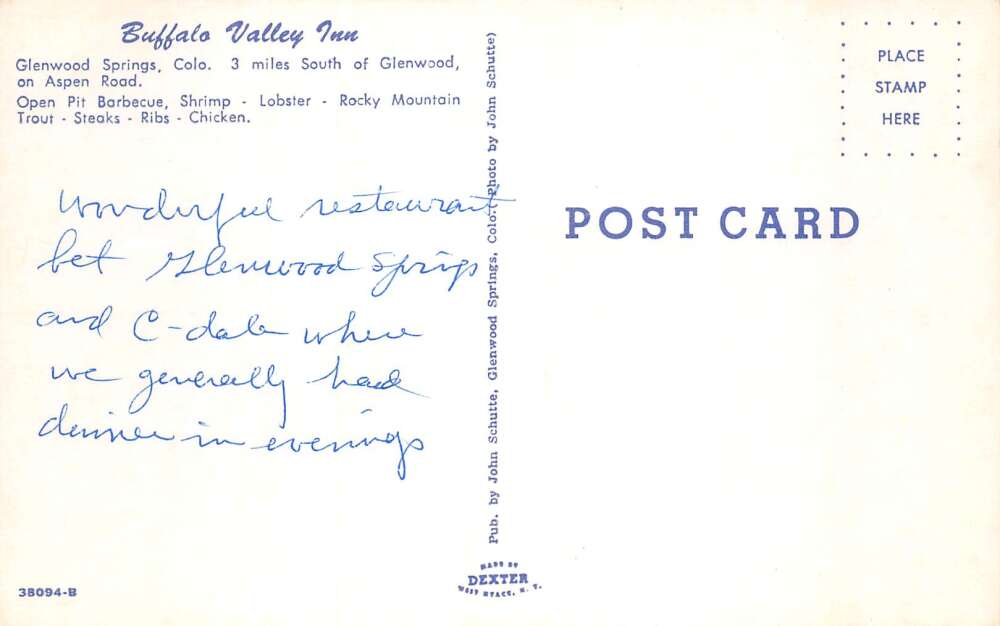 Buffalo Valley Inn
Glenwood Springs, Colo. 3 miles South of Glenwood,
on Aspen Road.
Open Pit Barbecue, Shrimp - Lobster - Rocky Mountain
Trout - Steaks - Ribs - Chicken.
wonderful restaurant
bet Glenwood Springs
and C-dale where
we generally had
dinner in evenings
38094-B
Pub. by John Schutte, Glenwood Springs, Colo. (Photo by John Schutte)
MADE BY
DEXTER
WEST NYACK, N. Y.
PLACE
STAMP
HERE
POST CARD